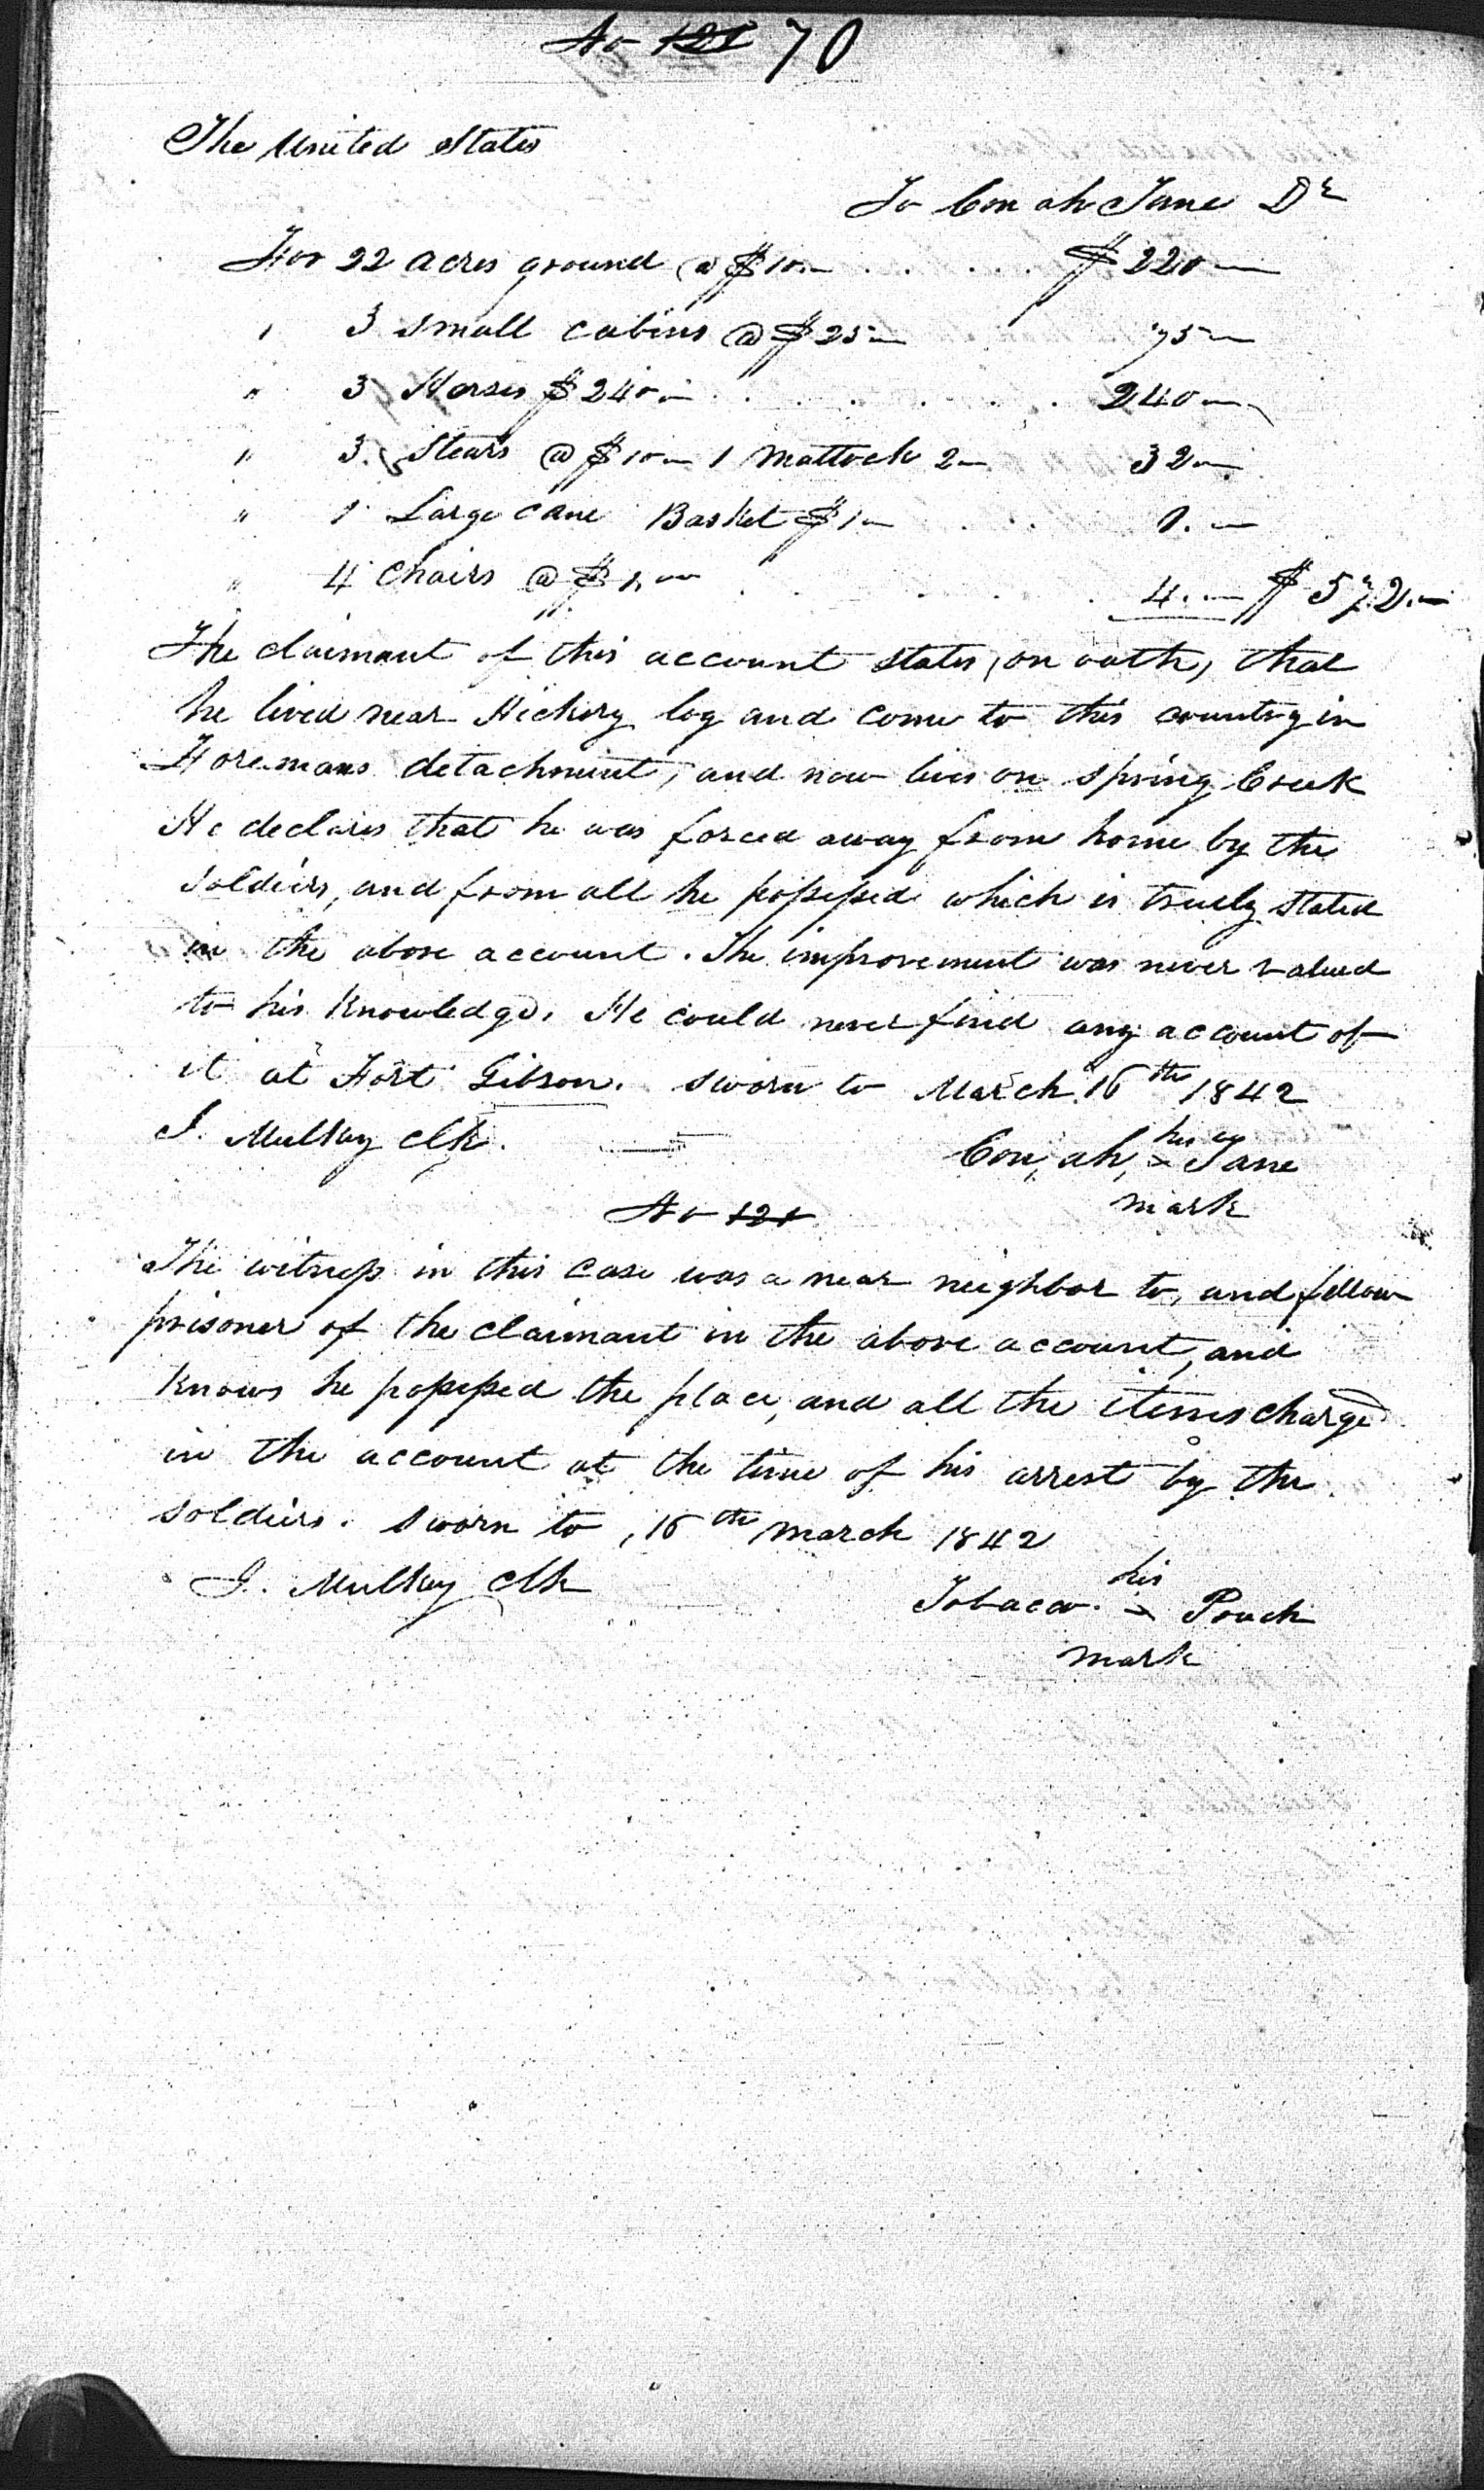 No 121 70
The United States
To Con ah Jane Dr
For 22 acres ground @ $10.— $ 220—
" 3 small cabins @ $25— 75—
" 3 Horses $240— 240—
" 3 Stears @ $10— 1 mattock 2— 32—
" 1 Large cane Basket $1— 1.—
" 4 Chairs @ $1.00 4.— $ 572.—
The claimant of this account states, on oath, that
he lived near Hickory log and come to this country in
Foremans detachment, and now lives on Spring Creek
He declares that he was forced away from home by the
soldiers, and from all he possessed which is truely stated
in the above account. The improvement was never valued
to his knowledge. He could never find any account of
it at Fort Gibson. Sworn to March 16th 1842
J. Mulkey Clk.
his
Con, ah, x Jane
mark
No 121
The witness in this case was a near neighbor to, and fellow
prisoner of the claimant in the above account, and
knows he possessed the place, and all the items charged
in the account at the time of his arrest by the
soldiers. Sworn to, 16th March 1842
J. Mulkey Clk
his
Tobacco x Pouch
mark